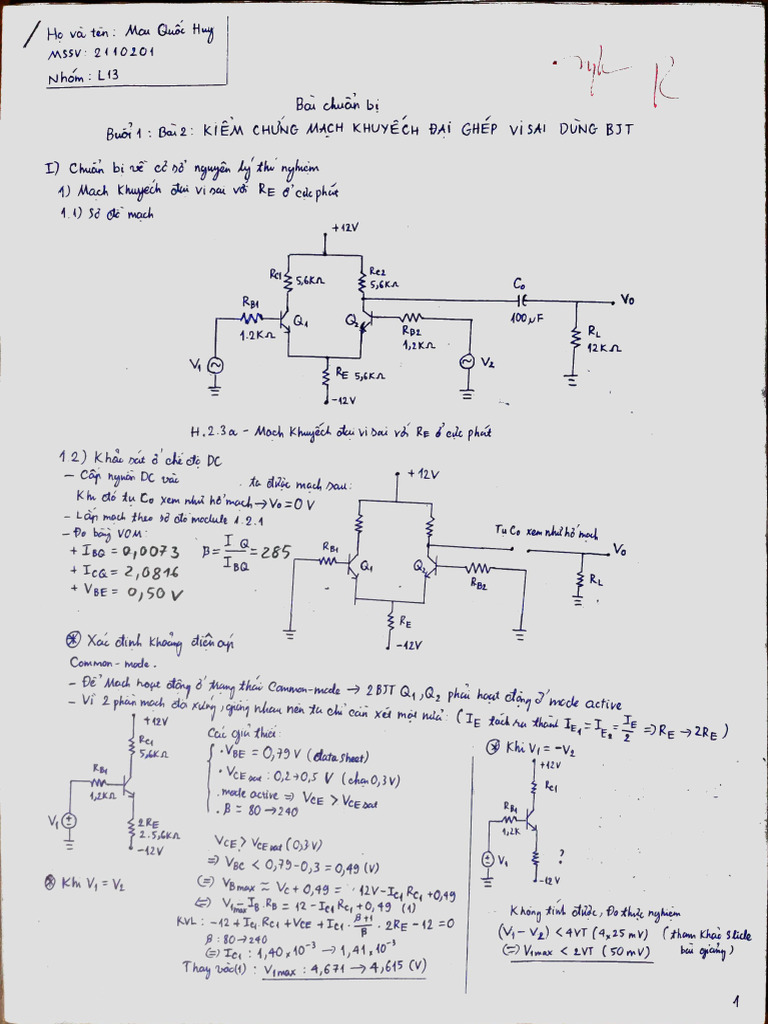 Họ và tên: Mau Quốc Huy
MSSV: 2110201
Nhóm: L13
Bài chuẩn bị
Buổi 1: Bài 2: KIỂM CHỨNG MẠCH KHUYẾCH ĐẠI GHÉP VI SAI DÙNG BJT
I) Chuẩn bị về cơ sở nguyên lý thí nghiệm
1) Mạch khuyếch đại vi sai với RE ở cực phát
1.1) Sơ đồ mạch
+12V
RC1 5,6KΩ
RC2 5,6KΩ
RB1 1.2KΩ
Q1
Q2
RB2 1,2KΩ
C0 100μF
V0
RL 12KΩ
V1
V2
RE 5,6KΩ
-12V
H.2.3a - Mạch khuyếch đại vi sai với RE ở cực phát
1.2) Khảo sát ở chế độ DC
- Cấp nguồn DC vào ta được mạch sau:
Khi đó tụ C0 xem như hở mạch → V0 = 0V
- Lắp mạch theo sơ đồ module 1.2.1
- Đo bằng VOM:
+ IBQ = 0,0073
β = I Q / IBQ = 285
+ ICQ = 2,0816
+ VBE = 0,50 V
+12V
Tụ C0 xem như hở mạch
RB1
Q1
Q2
RB2
V0
RL
RE
-12V
* Xác định khoảng điện áp
Common-mode.
- Để mạch hoạt động ở trạng thái Common-mode → 2 BJT Q1, Q2 phải hoạt động ở mode active
- Vì 2 phần mạch đối xứng, giống nhau nên ta chỉ cần xét một nửa: (IE tách ra thành IE1 = IE2 = IE/2 => RE → 2RE)
+12V
RC1
5,6KΩ
RB1
1,2KΩ
V1
2RE
2.5,6KΩ
-12V
Các giả thiết:
. VBE = 0,79 V (datasheet)
. VCEsat: 0,2→0,5 V (chọn 0,3V)
. mode active => VCE > VCEsat
. β = 80 → 240
* Khi V1 = V2
VCE > VCEsat (0,3V)
=> VBC < 0,79-0,3 = 0,49 (V)
(=) VBmax ≈ VC + 0,49 = 12V - IC1 RC1 + 0,49
(=) V1max - IB.RB = 12 - IC1 RC1 + 0,49 (1)
KVL: -12 + IC1.RC1 + VCE + IC1. β+1/β . 2RE - 12 = 0
β: 80→240
(=) IC1: 1,40×10⁻³ → 1,41.10⁻³
Thay vào (1): V1max: 4,671 → 4,615 (V)
* Khi V1 = -V2
+12V
RC1
RB1
1,2K
V1
?
-12V
Không tính được, Đo thực nghiệm
(V1 - V2) < 4VT (4×25 mV) (tham khảo slide bài giảng)
(=) V1max < 2VT (50 mV)
1